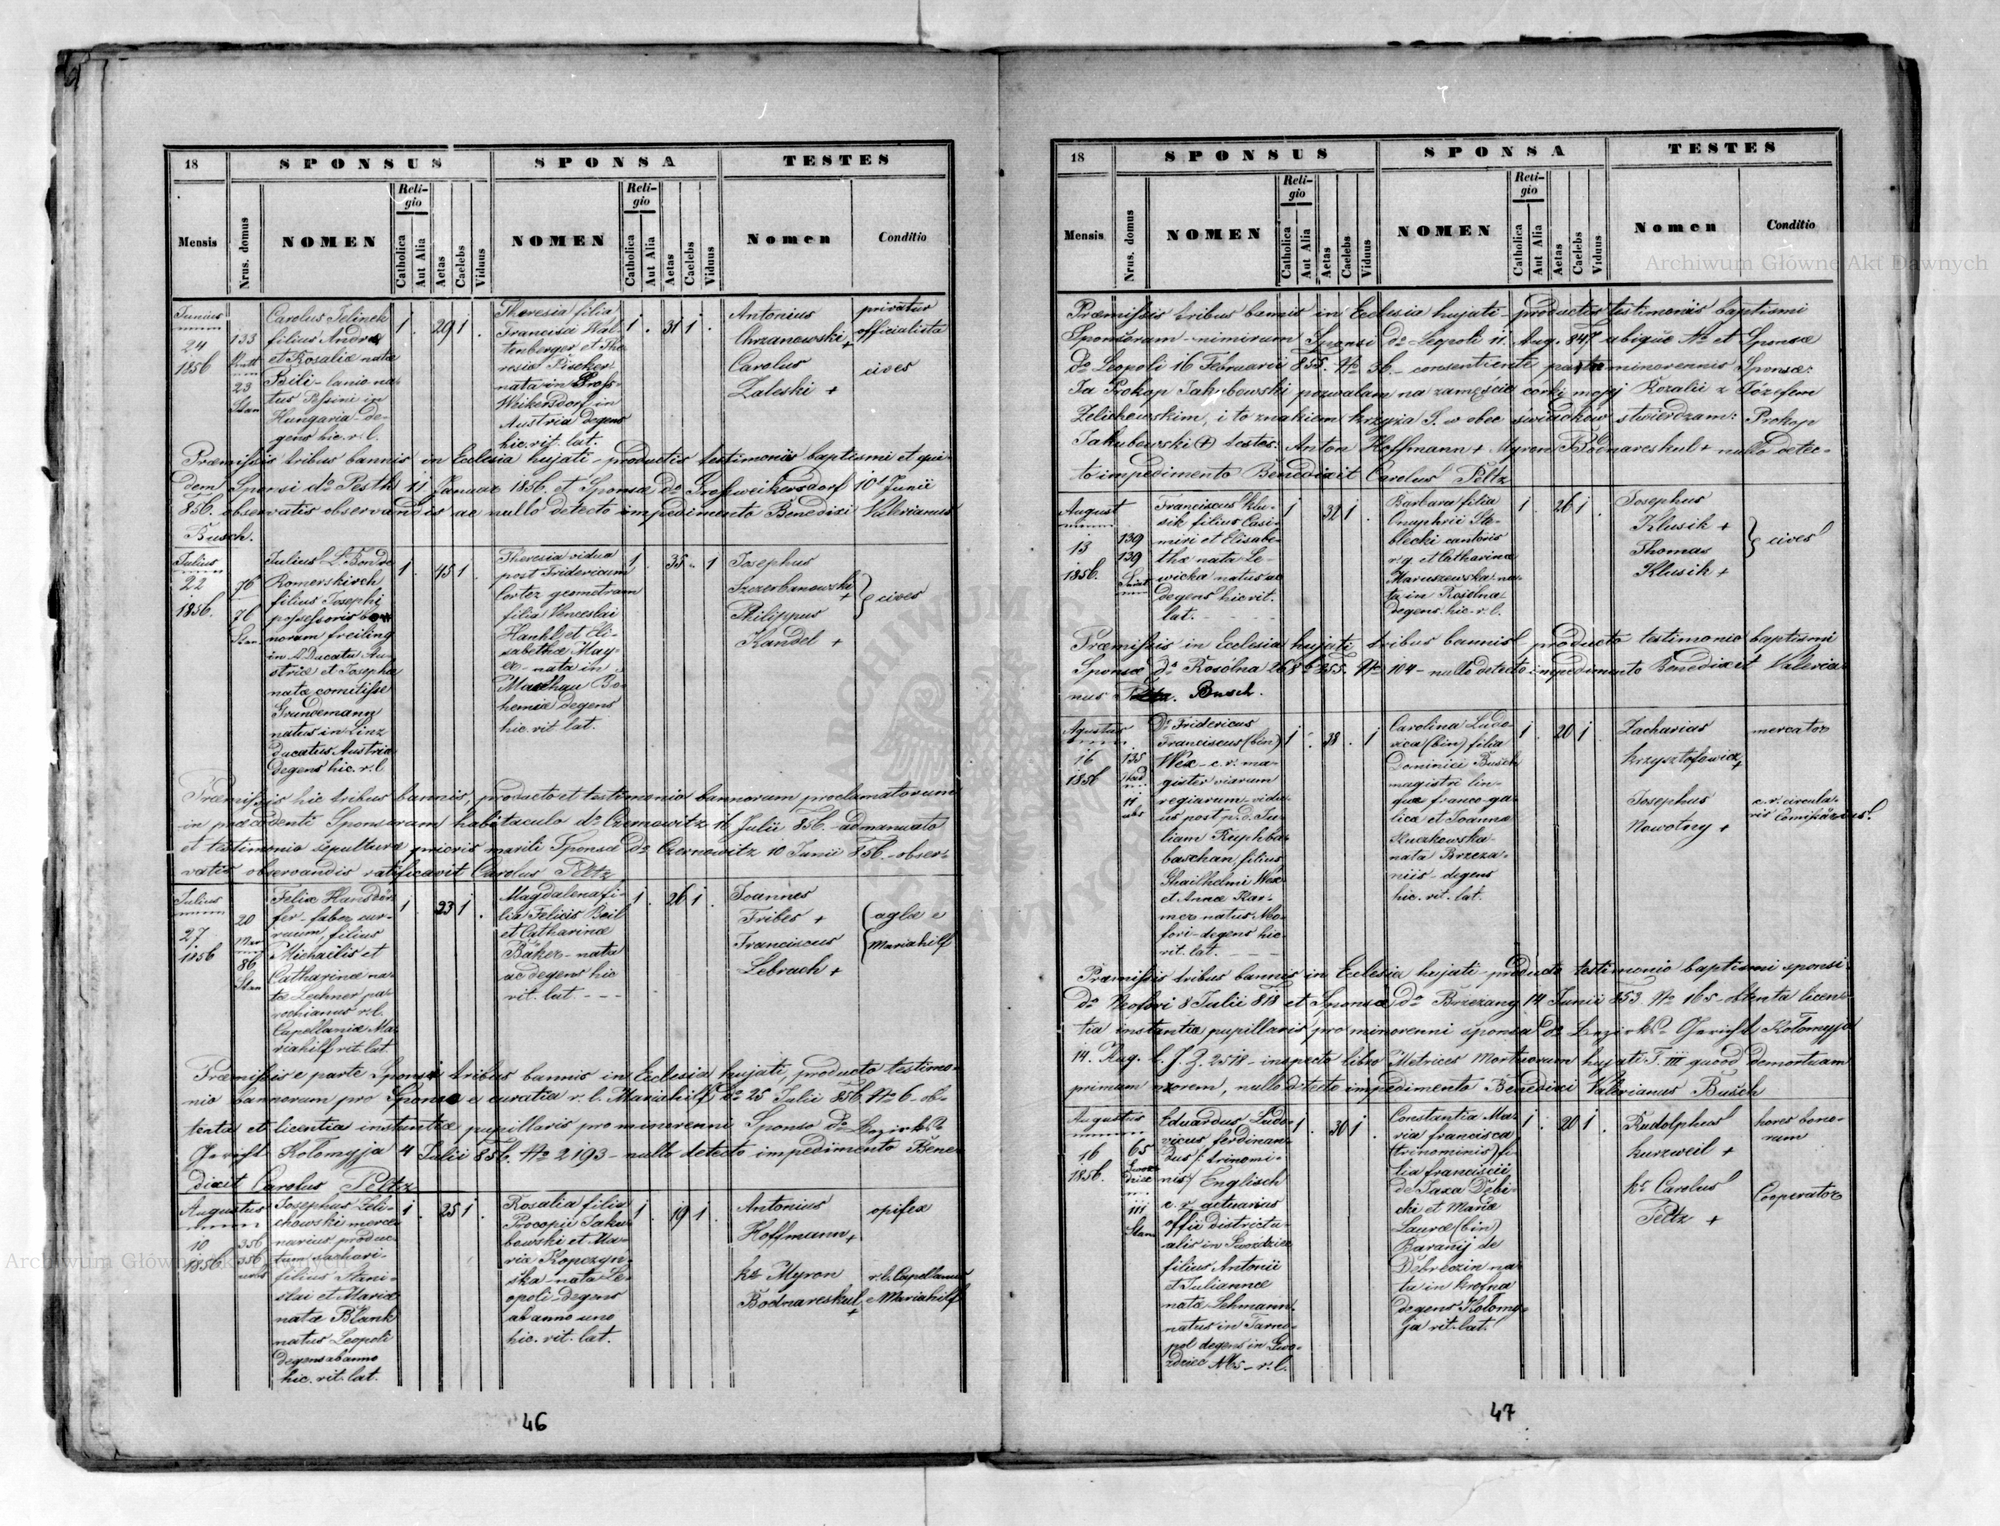 18
SPONSUS
SPONSA
TESTES
Mensis
Nrus. domus
NOMEN
Religio
Catholica
Aut Alia
Aetas
Caelebs
Viduus
NOMEN
Religio
Catholica
Aut Alia
Aetas
Caelebs
Viduus
Nomen
Conditio
Junius
24
1856
133
23
Stan
Carolus Jelinek
filius Andreæ
et Rosaliæ nata
Bili - lanio na-
tus Pesini in
Hungaria de-
gens hic. r. l.
1 . 29 1 .
Theresia filia
Francisci Wal-
tenberger et The-
resiæ Fischer
nata in Gross-
Weikersdorf in
Austria degens
hic. rit. lat.
1 . 31 1 .
Antonius
Chrzanowski +
Carolus
Zaleski +
privatus
officialista
cives
Præmissis tribus bannis in Ecclesia hujati - productis testimoniis baptismi et qui-
dem Sponsi do Pesth 11 Januar 1856. et Sponsæ do Großweikersdorf 10 Junii
856. observatis observandis ac nullo detecto impedimento Benedixi Valerianus
Busch.
Julius
22
1856.
76
76
Stan
Julius L. Bon de
Romerskirch
filius Josephi
possessoris bo-
norum freiling
in A. Ducatu Au-
striæ et Josepha
nata comitisse
Grundemann
natus in Linz
Ducatus Austria
degens hic. r. l.
1 . 45 1 .
Theresia vidua
post Fridericum
Cortez geometram
filia Venceslai
Hanhl et Eli-
sabethæ May-
er - nata in
Maschau Bo-
hemiæ degens
hic. rit. lat.
1 . 35 . 1
Josephus
Szczerbanowski +
Philippus
Kandel +
cives
Præmissis hic tribus bannis, producto et testimonio bannorum proclamatorum
in præcedenti Sponsarum habitaculo do Czernowitz 16 Julii 856. admanuato
et testimonio sepulturæ prioris mariti Sponsæ do Czernowitz 10 Junii 856. obser-
vatis observandis ratificavit Carolus Peltz
Julius
27
1856
20
Mar
86
Stan
Felix Hansdör-
fer - faber cur-
ruum, filius
Michaelis et
Catharinæ na-
tæ Lechner pa-
rochianus r. l.
Capellaniæ Ma-
riahilf rit. lat.
1 . 23 1 .
Magdalena fi-
lia Felicis Beil
et Catharinæ
Baker - nata
ac degens hic
rit. lat. - - -
1 . 26 1 .
Joannes
Tribes +
Franciscus
Lebrach +
aglæ e
Mariahilf
Præmissis e parte Sponsi tribus bannis in Ecclesia hujati, producto testimo-
nio bannorum pro Sponsa e curatia r. l. Mariahilf do 25 Julii 856. No 6. ob-
tenta et licentia instantiæ pupillaris pro minorenni Sponso do Bezirks
Gericht Kolomyja 4 Julii 856. No 2193 - nullo detecto impedimento Bene-
dixit Carolus Peltz
Augustus
10
1856
356
356
urbs
Josephus Zeli-
chowski merce-
narius produc-
tum sachari -
filius Stani-
slai et Mariæ
natæ Blank
natus Leopoli
degens ab anno
hic. rit. lat.
1 . 25 1 .
Rosalia filia
Procopii Jaku-
bowski et Ma-
ria Kopczyn-
ska - nata Le-
opoli - degens
ab anno uno
hic. rit. lat.
1 . 19 1 .
Antonius
Hoffmann +
ks Myron
Bodnareskul +
opifex
r. l. Capellanus
e Mariahilf
46
18
SPONSUS
SPONSA
TESTES
Mensis
Nrus. domus
NOMEN
Religio
Catholica
Aut Alia
Aetas
Caelebs
Viduus
NOMEN
Religio
Catholica
Aut Alia
Aetas
Caelebs
Viduus
Nomen
Conditio
Præmissis tribus bannis in Ecclesia hujati - productis testimoniis baptismi
Sponsorum - nimirum Sponsi do Leopoli 11. Aug. 847 absque No et Sponsæ
do Leopoli 16 Februarii 855. No 36. - consentiente patre minorennis Sponsæ:
Ja Prokop Jakubowski pozwalam na zamęście corki mojej Rozalii z Józefem
Zelichowskim, i to znakiem krzyża S. w obec swiadkow stwierdzam: Prokop
Jakubowski (+) testes: Anton Hoffmann + Myron Bodnareskul + nullo detec-
to impedimento Benedixit Carolus Peltz
August
13
1856.
139
139
Franciscus Klu-
sik filius Casi-
miri et Elisabe-
thæ nata Le-
wicka natus ac
degens hic rit.
lat. - - -
1 32 1 .
Barbara filia
Onuphrii Ste-
blecki cantoris
r. g. et Catharinæ
Haruszewska na-
ta in Rosolna
degens. hic. r. l.
1 . 26 1 .
Josephus
Klusik +
Thomas
Klusik +
cives
Præmissis in Ecclesia hujati tribus bannis producto testimonio baptismi
Sponsæ do Rosólna 26 8b 855. No 104 - nullo detecto impedimento Benedixit Valeria-
nus Busch.
Agustus
16
1856
135
11
urbs
Ds Fridericus
Franciscus (bin)
Wex - c. r. ma-
gister viarum
regiarum - vidu-
us post p. d. Ju-
liam Ruphba-
baschan, filius
Ghailhelmi Wex
et Annæ Kar-
mer natus Neo-
fori - degens hic.
rit. lat. - - -
1 . 38 . 1
Carolina Ludo-
vica (bin) filia
Dominici Busch
magistri lin-
guæ franco-ga-
lica et Joannæ
Kurakowska
nata Brzeza-
niis - degens
hic. rit. lat.
1 . 20 1 .
Zacharias
Krzysztofowicz +
Josephus
Nowotny +
mercator
c. r. circula-
ris Comissarius
Præmissis tribus bannis in Ecclesia hujati - producto testimonio baptismi sponsi
do Neofori 8 Julii 818 et Sponsæ do Brzezany 14 Junii 853. No 165 - obtenta licen-
tia instantiæ pupillaris pro minorenni sponsa do Bezirks Gericht Kolomyja
14. Aug. l. J. Z. 2518 - inspecto libro Metrices Mortuorum hujati T. III quoad Demortuam
primam uxorem, nullo detecto impedimento Benedixi Valerianus Busch
Augustus
16
1856.
65
III
Stan
Eduardus Ludo-
vicus ferdinan-
dus (trinomi-
nis) Englisch
c. r. actuarius
offii districtu-
alis in Gwoździec
filius Antonii
et Juliannæ
natæ Lehmann
natus in Tarno-
pol degens in Gwo-
ździec No 65 - r. l.
1 . 30 1 .
Constantia Ma-
ria francisca
(trinominis) fi-
lia francisci
de Jaxa Dębi-
cki et Mariæ
Lauræ (bin)
Baranij de
Debreczin na-
ta in Krosna
degens Kolomy-
ja rit. lat.
1 . 20 1 .
Rudolphus
Kurzweil +
ks Carolus
Peltz +
hæres bono-
rum
Cooperator
47
Archiwum Główne Akt Dawnych
Archiwum Główne Akt Dawnych